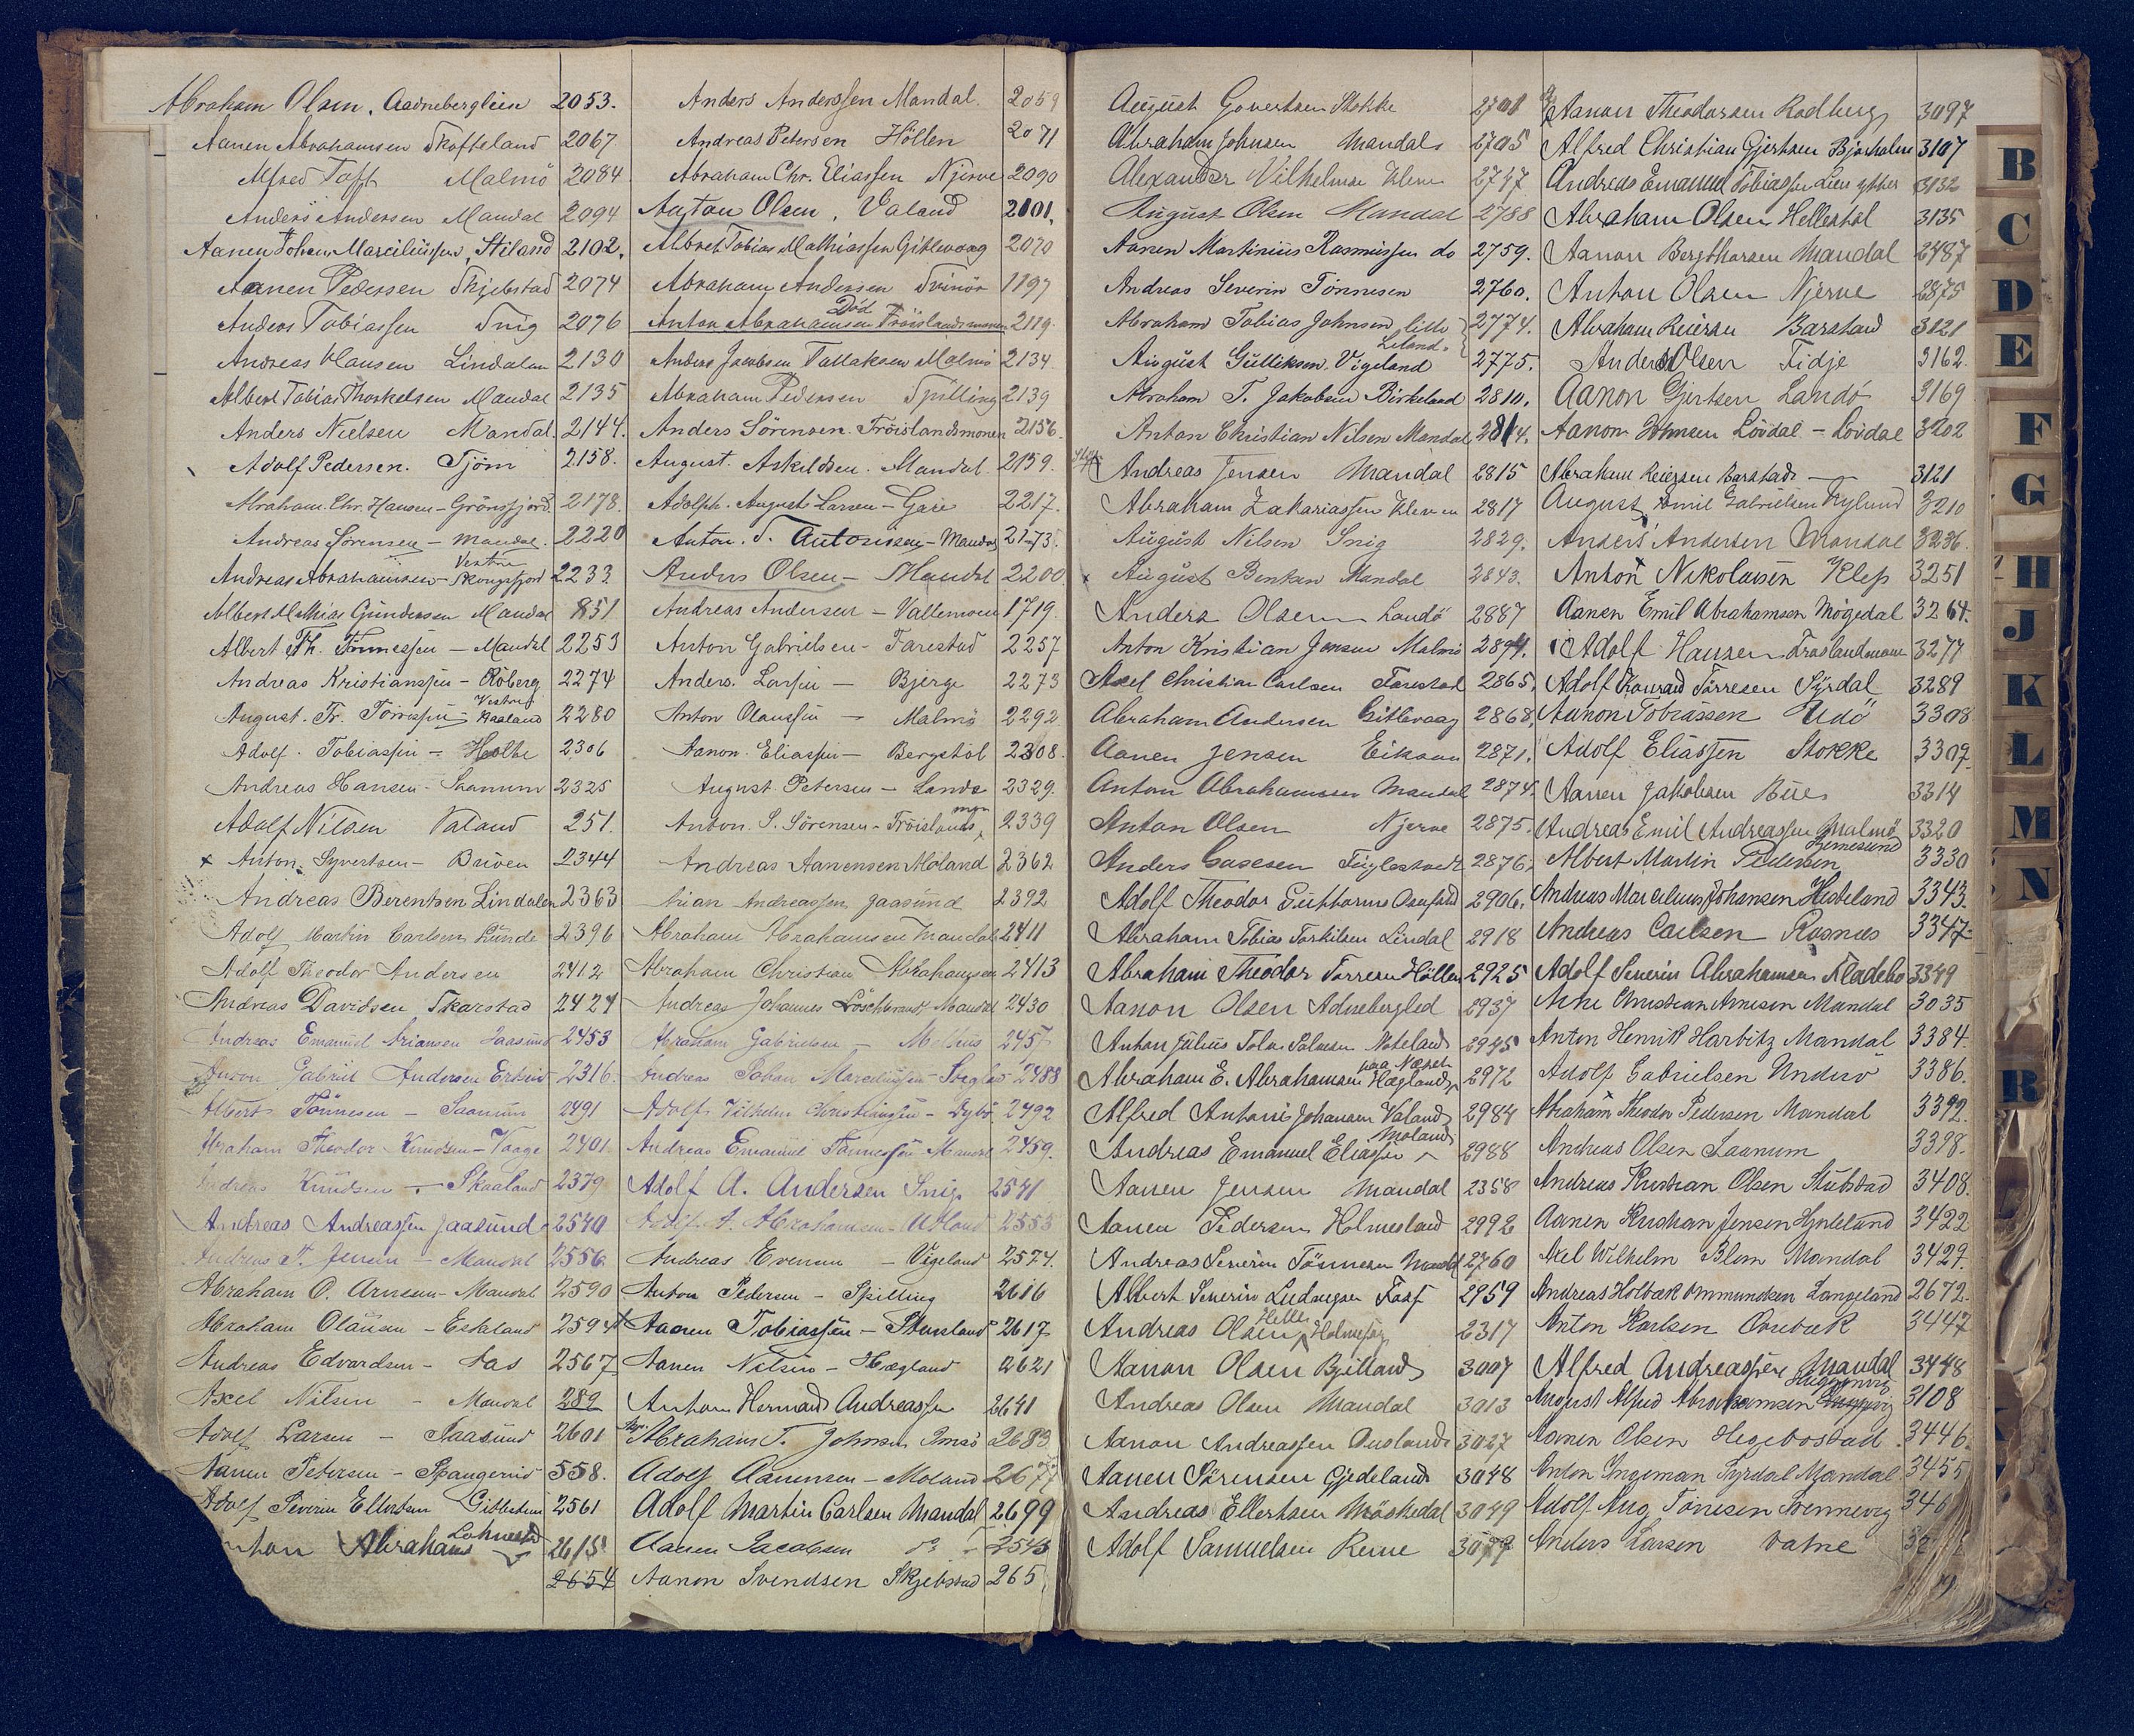 Abraham Olsen, Aadnebergleien 2053.
Aanen Abrahamsen Skofteland 2067.
Alfred Toft Malmö 2084
Anders Andersen Mandal 2094
Aanen Johan Marciliussen, Stiland 2102.
Aanen Pedersen Skjebstad 2074
Anders Tobiassen Snig 2076
Andreas Hansen Lindalen 2130
Albert Tobias Thorkelsen Mandal 2135
Anders Nielsen Mandal 2144.
Adolf Pedersen. Tjöm 2158.
Abraham Chr. Hansen - Grönsfjord. 2178.
Andreas Sörensen - Mandal. 2220
Andreas Abrahamsen - Vestre Skougsfjord 2233
Albert Mathias Gundersen Mandal 851
Albert Th. Tönnessen - Mandal 2253
Andreas Kristianssen - Röberg 2274
August. Fr. Torressen - Vestre Haaland 2280
Adolf. Tobiassen - Holte 2306
Andreas Hansen - Saanum 2325
Adolf Nilsen Valand 251.
x Anton. Syvertsen - Buven 2344
Andreas Berentsen Lindalen 2363
Adolf Martin Carlsen Lunde 2396
Adolf Theodor Andersen 2412
Andreas Davidsen Skarstad 2424
Andreas Emanuel Ariansen Jaasund 2453
Gabriel Andersen 2316.
Albert Tönnesen - Saanum 2491
Abraham Theodor Knudsen - Vaage 2401
Andreas Knudsen - Skaaland 2379
Andreas Andreassen Jaasund 2540
Andreas T. Jensen - Mandal 2556.
Abraham O. Arnesen - Mandal 2590
Abraham Olausen - Eskeland 2594
Andreas Edvardsen - Aas 2567
Axel Nilsen - Mandal 289
Adolf Larsen - Jaasund 2601
Aanen Petersen - Spangereid 558.
Adolf Severin Ellertsen 2561
Abrahams 2615
2654
Anders Anderssen Mandal. 2059
Andreas Petersen Höllen 2071
Abraham Chr. Eliassen Njerve 2090
Anton Olsen, Valand 2101.
Albret Tobias Mathiassen Gitlevaag 2070
Abraham Andersen Svinör 1197
Död
Anton Abrahamsen Fröislandsmonen 2119.
Anders Jacobsen Tallaksen Malmö 2134.
Abraham Pedersen Spilling 2139
Anders Sörensen. Fröislandsmonen 2156.
August. Askildsen. Mandal. 2159.
Adolph. August Larsen - Gare 2217.
Anton. T. Antonisen - Mandal 2173.
Anders Olsen - Mandal 2200
Andreas Andersen - Vallemoen 1719.
Anton Gabrielsen - Farestad 2257
Anders. Larsen - Bjerge 2273
Anton Olaussen - Malmö 2292
Aanon. Eliassen - Bergstöl 2308.
August Petersen - Landö 2329.
Anton. S. Sörensen - Fröislands mon 2339
Andreas Aanensen Moland 2362
Arian Andreassen Jaasund 2392
Abraham Abrahamsen Mandal 2411
Abraham Christian Abrahamsen 2413
Andreas Johannes Mandal 2430
Abraham Gabrielsen - 2457
Andreas Johan Marciliussen - 2488
Adolf Vilhelm Christiansen - Dybö. 2492
Andreas Emanuel Tönnessen Mandal 2459.
Adolf A. Andersen Snig. 2541
Adolf A. Abrahamsen - 2555
Andreas Evensen - Vigeland 2574.
Anton Pedersen - Spilling 2616
Aanen Tobiassen - 2617
Aanen Nilsen - Hægland 2621
Anton Hermand Andreassen 2641
Abraham T. Johnsen Imsö 2683
Adolf Aanensen - Moland 2677
Adolf Martin Carlsen Mandal 2699
Aanen Jacobsen do - 2545
Aanon Svendsen Skjebstad 265
August Govertsen Stokke 2701
Abraham Johnsen Mandal 2705
Alexander Vilhelmsen Kleven 2747
August Olsen Mandal 2788
Aanen Martinius Rasmussen do 2759.
Andreas Severin Tönnesen 2760.
Abraham Tobias Johnsen lille Leland. 2774.
August Gulliksen. Vigeland 2775.
Abraham T. Jakobsen Birkeland 2810.
Anton Christian Nilsen Mandal 2814.
Andreas Jensen Mandal 2815
Abraham Zakariassen Kleven 2817
August Nilsen Snig 2829.
x August Bentsen Mandal 2843.
Anders Olsen Landö 2887
Anton Kristian Jensen Malmö 2894.
Axel Christian Carlsen Farestad 2865.
Abraham Andersen Gitlevaag 2868.
Aanen Jensen Eikaan 2871.
Anton Abrahamsen Mandal 2874.
Anton Olsen Njerve 2875.
Anders Casesen Fuglestvedt 2876.
Adolf Theodor Guttormsen 2906.
Abraham Tobias Torkilsen Lindal 2918
Abraham Theodor Torresen Höllen 2925
Aanon Olsen Adnebergled 2937
Anton Julius Nodeland 2945
Abraham E. Abrahamsen paa Næset Hægland 2972
Alfred Antoni Johansen Valand 2984
Andreas Emanuel Eliassen Moland 2988
Aanen Jensen Mandal 2358
Aanen Pedersen Holmesland 2992
Andreas Severin Tönnesen Mandal 2760
Albert Severin Ludvigsen 2959
Andreas Olsen Helle Holmesen 2317
Aanon Olsen Bjelland 3007
Andreas Olsen Mandal 3013
Aanon Andreassen Ousland 3027
Aanen Sörensen Gjedeland 3048
Andreas Ellertsen Möskedal 3049
Adolf Samuelsen Reme 3077
Aanon Theodorsen Rodberg 3097
Alfred Christian Gjertsen Bjørholm 3107
Andreas Emanuel Tobiassen Lien ytther 3132
Abraham Olsen Hellestöl 3135
Aanon Bergthorsen Mandal 2487
Anton Olsen Njerve 2875
Abraham Reiersen Barstad 3121
Anders Olsen Fidje 3162.
Aanon Gjertsen Landö 3169
Aanon Johnsen Lövdal - Lövdal 3202
Abraham Reiersen Barstad - 3121
August Emil Gabrielsen Rylund 3210
Anders Andersen Mandal 3236.
Anton Nikolaisen Klep 3251
Aanen Emil Abrahamsen Mögedal 3264.
Adolf Hansen Fröslandsmoen 3277
Adolf Konrad Törresen Syrdal 3289
Aanon Tobiassen Udö 3308
Adolf Eliassen Stokke 3309.
Aanen Jakobsen Bue 3314
Andreas Emil Andreassen Malmö 3320
Albert Martin Pedersen 3330
Andreas Marcelius Johansen Hesteland 3343.
Andreas Carlsen Rosnæs 3347
Adolf Severin Abrahamsen Fladebo 3349
Arne Christian Arnesen Mandal 3035
Anton Henrik Harbitz Mandal 3384.
Adolf Gabrielsen Underö 3386.
Abraham Theodor Pedersen Mandal 3392.
Andreas Olsen Saanum 3398.
Andreas Kristian Olsen Stubstad 3408.
Aanen Kristian Jensen 3422
Axel Wilhelm Blom Mandal 3429.
Andreas Holbæk Ommundsen Langeland 2672.
Anton Karlsen Ovrebæk 3447
Alfred Andreassen Mandal 3448
August Alfred Abrahamsen 3108
Aanen Olsen Hegebostad 3446.
Anton Ingeman Syrdal Mandal 3455
Adolf Aug. Tönnesen Svennevig 346
Anders Larsen Vatne
B
C
D
E
F
G
H
J
K
L
M
N
R